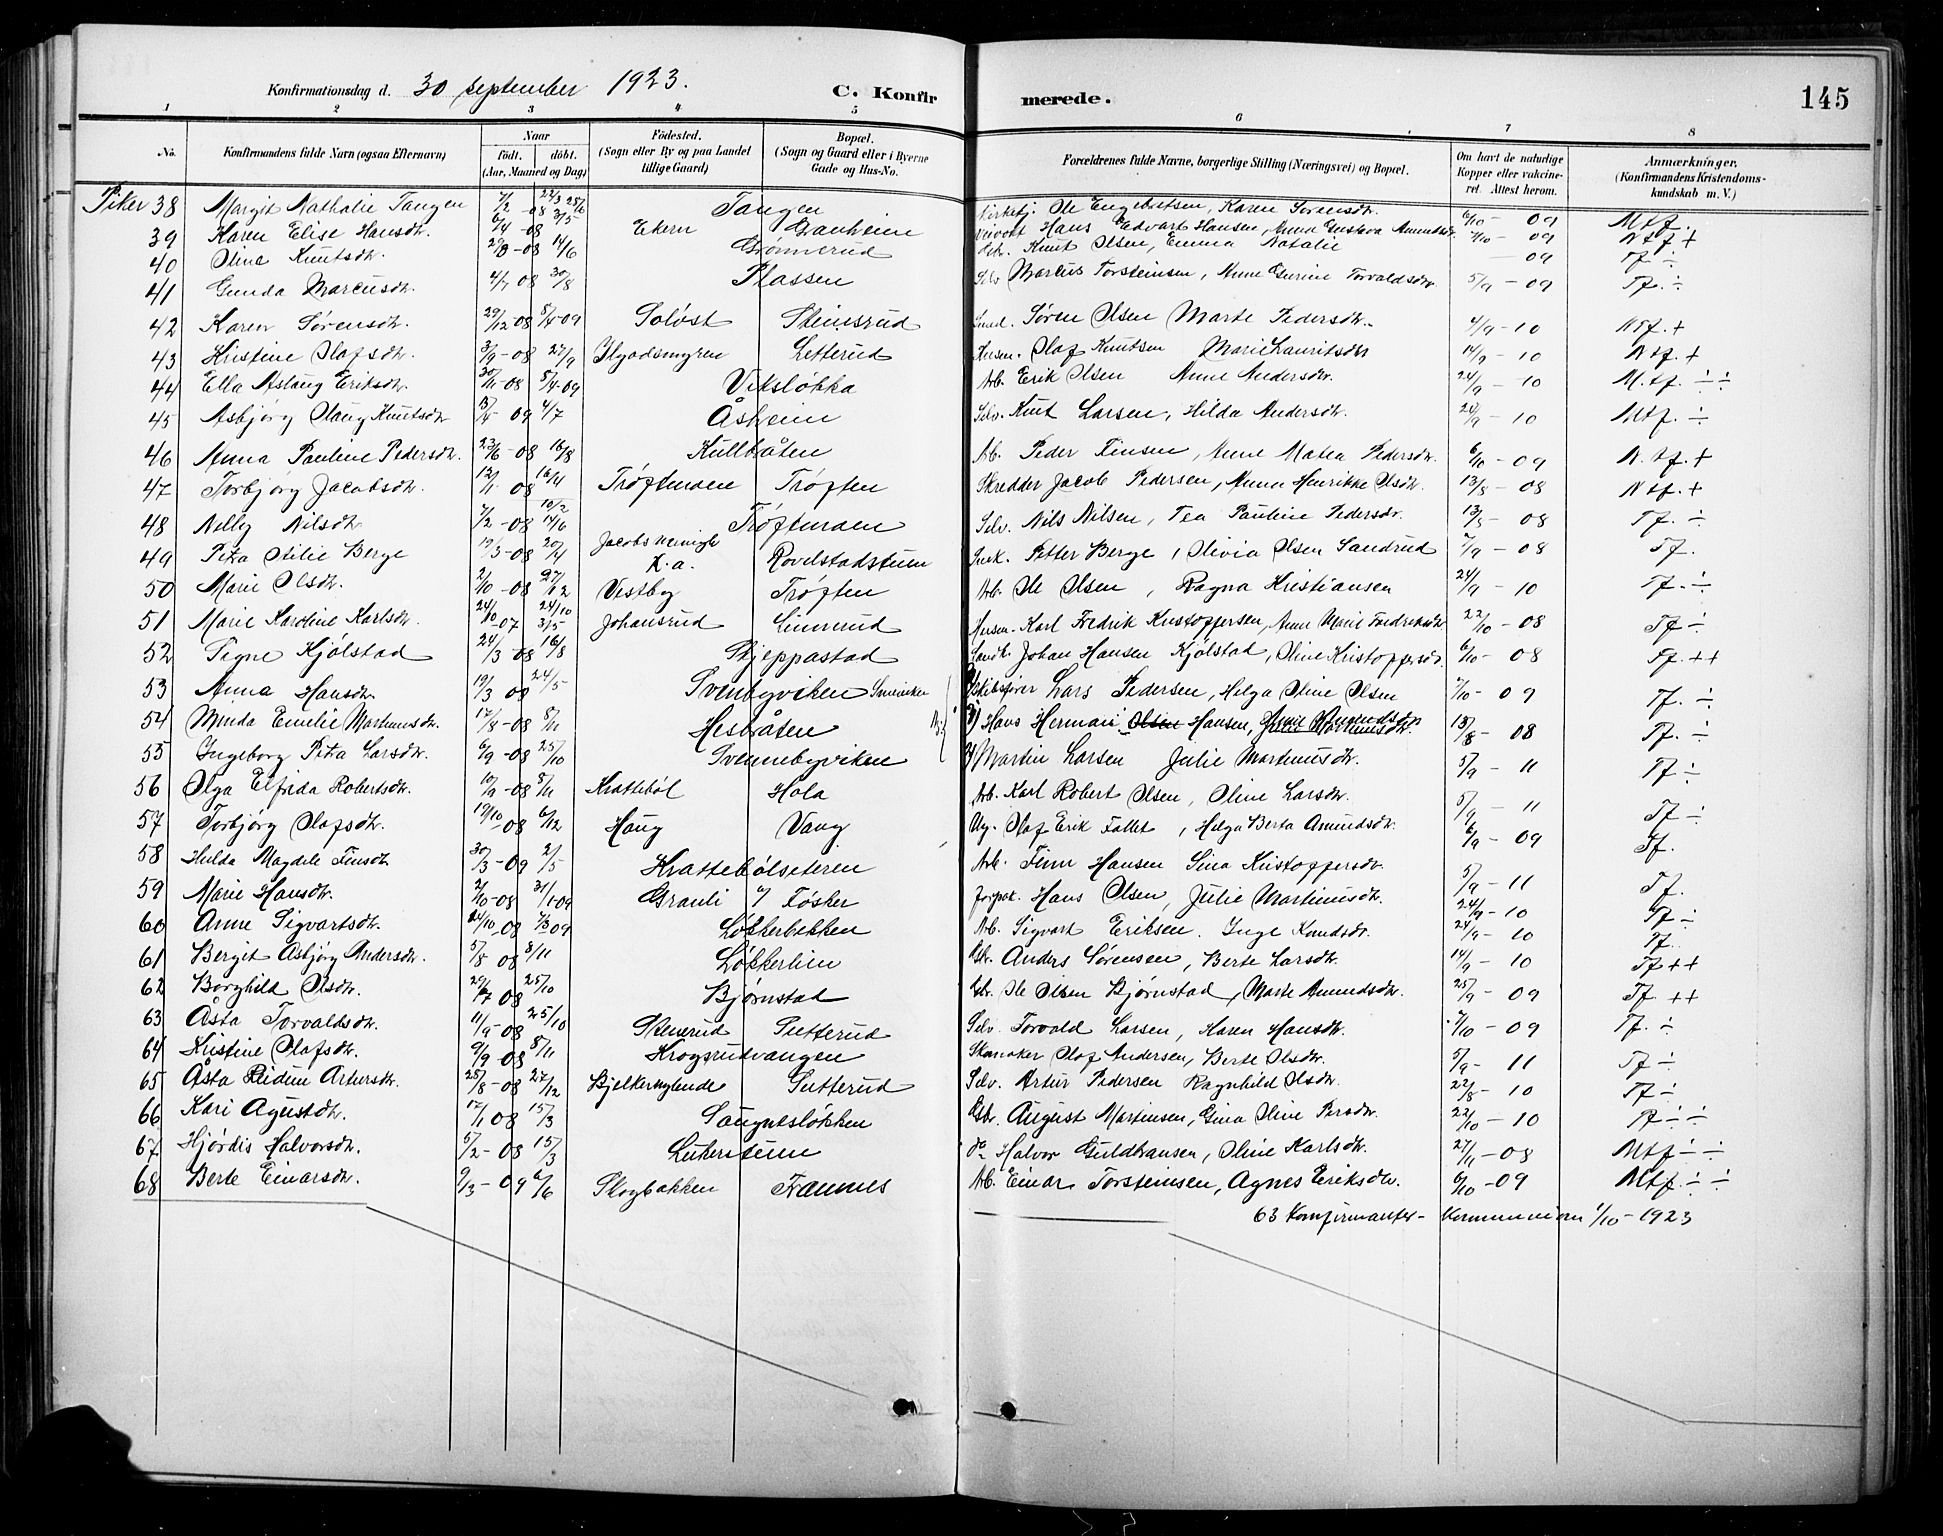 Konfirmationsdag d. 30 september 1923. C. Konfir merede. 145
1 2 3 4 5 6 7 8
No. Konfirmandens fulde Navn (ogsaa Efternavn) Naar födt. döbt. (Aar, Maaned og Dag) Födested. (Sogn eller By og paa Landet tillige Gaard) Bopæl. (Sogn og Gaard eller i Byerne Gade og Hus-No. Forældrenes fulde Navne, borgerlige Stilling (Næringsvei) og Bopæl. Om havt de naturlige Kopper eller vakcineret. Attest herom. Anmærkninger. (Konfirmandens Kristendomskundskab m. V.)
Piker 38 Margit Nathalie Tangen 7/2 - 08 Tangen Kirketj. Ole Engebretsen, Karen Sørensdtr. 6/10 - 09 Mtf.
39 Karen Elise Hansdtr. 6/4 - 08 3/5 Ekern Hans Edvart Hansen, Anna Gustava Amundsdtr. 7/10 - 09 Ntf +
40 Oline Knutsdtr. 08 14/6 Grønnerud Knut Olsen, Emma Natalie - 09 Tf ÷
41 Gunda Marcusdtr. 4/7 08 30/8 Plassen Selv. Marcus Torsteinsen, Anne Gurine Torvaldsdtr. 5/9 - 09 Tf. ÷
42 Karen Sørensdtr. 29/12 - 08 8/4 - 09 Soløst Steinsrud Smed. Søren Olsen Marte Pedersdtr. 4/9 - 10 Ntf. +
43 Kristine Olafsdtr. 3/9 - 08 27/9 Letterud Olaf Knutsen Marie Lauritsdtr 14/9 - 10 Ntf. +
44 Ella Aslaug Eriksdtr. 30/11 - 08 8/4 - 09 Viksløkka Arb. Erik Olsen Anne Andersdtr. 24/9 - 10 M.tf. ÷ ÷
45 Asbjørg Olaug Knutsdtr 09 4/7 Åsheim Selv. Knut Larsen, Hilda Andersdtr. 24/9 - 10 Mtf. ÷
46 Anna Pauline Pedersdtr. 23/6 - 08 16/8 Kullbråten Arb. Peder Finsen, Anne Matea Pedersdtr. 6/10 - 09 N.tf. +
47 Torbjørg Jacobsdtr. 12/1 08 16/4 Trøftmoen Trøften Skredder Jacob Pedersen, Anna Henrikke Olsdtr. 13/8 - 08 Ntf. +
48 Nelly Nilsdtr 7/2 - 08 14/6 Trøftmoen Selv. Nils Nilsen, Tea Pauline Pedersdtr. 13/8 - 08 Tf. ÷
49 Petra Otilie Berge 19/3 - 08 20/4 Jacobs menigh K.a. Rovelstadstuen Petter Berge, Olivia Olsen Sandrud 7/9 - 08 Tf.
50 Marie Olsdtr. 2/10 - 08 27/12 Vestby Trøften Arb. Ole Olsen, Ragna Kristiansen 24/9 - 10 Tf. ÷
51 Marie Karoline Karlsdtr. 24/10 - 07 Johansrud Linnerud Karl Fredrik Kristoffersen, Anne Marie Fredriksdtr 22/10 - 08 Tf ÷
52 Signe Kjølstad 24/3 - 08 16/8 Skjeppastad Johan Hansen Kjølstad, Oline Kristoffersdtr. 6/10 - 08 Tf. ++
53 Anna Hansdtr. 19/3 08 24/5 Svenbyviken Lars Pedersen, Helga Oline Olsen 7/10 - 09 Tf. ÷
54 Minda Emelie Martinusdtr. 17/8 - 08 8/11 Hesbråten Hans Herman Olsen Hansen, 13/8 - 08 Tf. ÷
55 Ingeborg Petra Larsdtr. 6/9 - 08 25/10 Svennebyviken Martin Larsen Julie Martinusdtr. 5/9 - 11 Tf ÷
56 Olga Elfrida Robertsdtr. 08 8/11 Krattebøl Hola Arb. Karl Robert Olsen, Oline Larsdtr. 5/9 - 11 Tf ÷
57 Torbjørg Olafsdtr. 19/10 - 08 6/12 Haug Vang Olaf Erik Fallet, Helga Berta Amundsdtr. 6/9 - 09 Tf.
58 Hulda Magdele Finsdtr 30/3 - 09 2/5 Krattebølseteren Arb. Finn Hansen Sina Kristoffersdtr.
59 Marie Hansdtr. 2/10 - 08 31/1 - 09 Granli u/ Føsker Forpak. Hans Olsen, Julie Martinusdtr. 5/9 - 11 Tf.
60 Anne Sigvartsdtr. 24/10 - 08 7/3 09 Løkkerbakken Arb. Sigvart Eriksen. Inge Knudsdtr. 24/9 - 10 Tf ÷
61 Bergit Asbjørg Andersdtr. 5/8 08 8/11 Løkkerlien Gbr. Anders Sørensen, Berte Larsdtr. 24/9 - 10 Tf.
62 Borghild Olsdtr. 08 25/10 Bjørnstad Gbr. Ole Olsen Bjørnstad, Marte Amundsdtr. 14/9 - 10 Tf ++
63 Åsta Torvaldsdtr. 11/9 - 08 25/10 Stenerud Sutterud Selv. Torvald Larsen, Karen Hansdtr. 25/9 - 09 Tf ++
64 Kristine Olafsdtr. 9/9 - 08 8/11 Krogsrudvangen Skomaker Olaf Andersen, Berte Olsdtr. 7/10 - 09 Tf. ÷
65 Åsta Reidun Artursdtr. 25/8 - 08 27/12 Bjelkernylende Sutterud Selv. Artur Pedersen Ragnhild Olsdtr. 5/9 - 11 Tf ÷
66 Kari Agustdtr. 17/1 08 15/3 Saugnesløkken Gbr. August Martinsen, Gina Oline Persdtr. 22/8 - 10 Tf ÷
67 Hjørdis Halvorsdtr. 5/2 - 08 15/3 Luterstuen do Halvor Guldbransen, Oline Karlsdtr. 22/10 - 10 Tf ÷ ÷
68 Berte Einarsdtr. 9/3 - 09 6/6 Skogbakken Framnes Arb. Einar Torsteinsen, Agnes Eriksdtr. 27/11 - 08 Mtf ÷ ÷
6/10 - 09 Mtf. ÷ ÷
63 Konfirmanter - Kommunion 1/10 - 1923